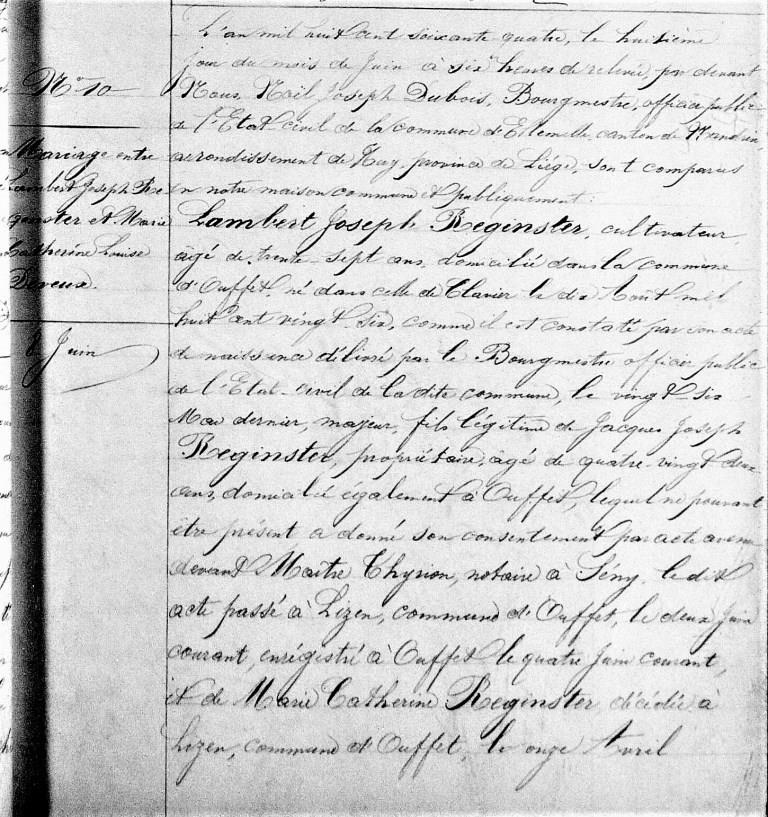 N° 10
Mariage entre
Lambert Joseph Re
ginster et Marie
Catherine Louise
Deveux.
8 Juin
L'an mil huit cent soixante quatre, le huitième
jour du mois de Juin à six heures de relevée, par devant
Nous, Noël Joseph Dubois, Bourgmestre, officier public
de l'Etat-civil de la commune d'Ellemelle, canton de Nandrin,
arrondissement de Huy, province de Liége, sont comparus
en notre maison commune et publiquement :
Lambert Joseph Reginster, cultivateur,
âgé de trente-sept ans, domicilié dans la commune
d'Ouffet, né dans celle de Clavier le dix Août mil
huit cent vingt-six, comme il est constaté par son acte
de naissance délivré par le Bourgmestre officier public
de l'Etat-civil de la dite commune, le vingt-six
Mai dernier, majeur, fils légitime de Jacques Joseph
Reginster, propriétaire, âgé de quatre-vingt deux
ans, domicilié également à Ouffet, lequel ne pouvant
être présent a donné son consentement par acte avenu
devant Maître Thyrion, notaire à Sény, le dit
acte passé à Lizen, commune d'Ouffet, le deux Juin
courant, enrégistré à Ouffet le quatre Juin courant,
et de Marie Catherine Reginster, décédée à
Lizen, commune d'Ouffet, le onze Avril